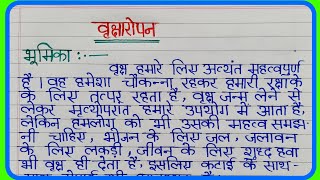 वृक्षारोपन
भूमिका :--
वृक्ष हमारे लिए अत्यंत महत्वपूर्ण
है। वह हमेशा चौकन्ना रहकर हमारी रक्षा के
के लिए तत्पर रहता है, वृक्ष जन्म लेने से
लेकर मृत्योपरांत हमारे उपयोग में आता है,
लेकिन हमलोग को भी उसकी महत्व समझ-
नी चाहिए, भोजन के लिए जल, जलावन
के लिए लकड़ी, जीवन के लिए शुद्ध हवा
भी वृक्ष ही देता है, इसलिए कटाई के साथ-